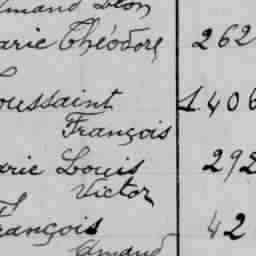 Amand Léon
arie Théodore 262
oussaint 1406
François
arie Louis 292
Victor
rançois 42
Amand